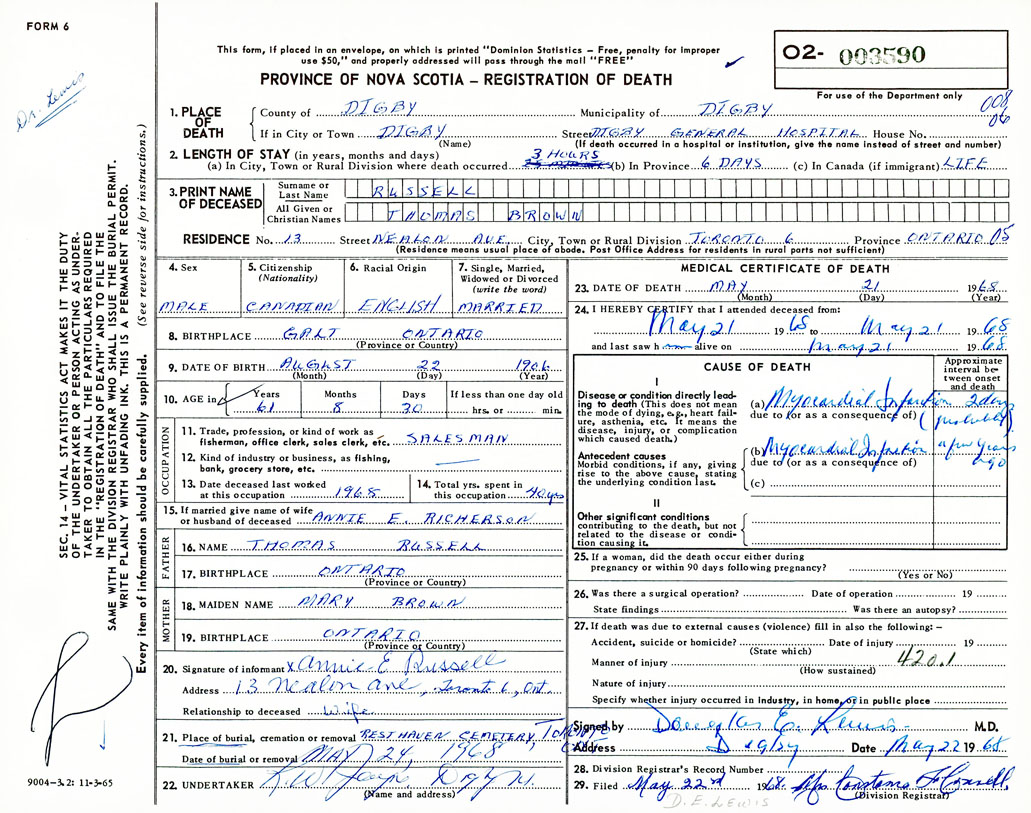 FORM 6
This form, if placed in an envelope, on which is printed "Dominion Statistics – Free, penalty for improper
use $50," and properly addressed will pass through the mail "FREE"
O2- 003590
For use of the Department only
PROVINCE OF NOVA SCOTIA – REGISTRATION OF DEATH
Dr. Lewis
008
06
1. PLACE OF DEATH
County of DIGBY Municipality of DIGBY
If in City or Town DIGBY Street DIGBY GENERAL HOSPITAL House No.
(Name) (If death occurred in a hospital or institution, give the name instead of street and number)
2. LENGTH OF STAY (in years, months and days) 3 HOURS
(a) In City, Town or Rural Division where death occurred (b) In Province 6 DAYS (c) In Canada (if immigrant) LIFE
3. PRINT NAME OF DECEASED
Surname or Last Name RUSSELL
All Given or Christian Names THOMAS BROWN
RESIDENCE No. 13 Street NEALON AVE. City, Town or Rural Division TORONTO 6 Province ONTARIO 05
(Residence means usual place of abode. Post Office Address for residents in rural parts not sufficient)
4. Sex MALE
5. Citizenship (Nationality) CANADIAN
6. Racial Origin ENGLISH
7. Single, Married, Widowed or Divorced (write the word) MARRIED
8. BIRTHPLACE GALT ONTARIO
(Province or Country)
9. DATE OF BIRTH AUGUST 22 1906
(Month) (Day) (Year)
10. AGE in Years Months Days If less than one day old
61 8 30 hrs. or min.
OCCUPATION
11. Trade, profession, or kind of work as
fisherman, office clerk, sales clerk, etc. SALESMAN
12. Kind of industry or business, as fishing,
bank, grocery store, etc.
13. Date deceased last worked
at this occupation 1968
14. Total yrs. spent in
this occupation 40 yrs
15. If married give name of wife
or husband of deceased ANNIE E. RICHERSON
FATHER
16. NAME THOMAS RUSSELL
17. BIRTHPLACE ONTARIO
(Province or Country)
MOTHER
18. MAIDEN NAME MARY BROWN
19. BIRTHPLACE ONTARIO
(Province or Country)
20. Signature of informant x Annie E Russell
Address 13 Nealon Ave, Toronto 6, Ont.
Relationship to deceased Wife
21. Place of burial, cremation or removal RESTHAVEN CEMETERY, TORONTO ONT
Date of burial or removal MAY 24, 1968
22. UNDERTAKER
(Name and address)
MEDICAL CERTIFICATE OF DEATH
23. DATE OF DEATH MAY 21 1968
(Month) (Day) (Year)
24. I HEREBY CERTIFY that I attended deceased from:
May 21 1968 to May 21 1968
and last saw h alive on May 21 1968
CAUSE OF DEATH
Approximate interval between onset and death
I
Disease or condition directly leading to death (This does not mean
the mode of dying, e.g., heart failure, asthenia, etc. It means the
disease, injury, or complication
which caused death.)
(a) Myocardial Infarction 2 days
due to (or as a consequence of) (probably)
Antecedent causes
Morbid conditions, if any, giving
rise to the above cause, stating
the underlying condition last.
(b) Myocardial Infarction a few years ago
due to (or as a consequence of)
(c)
II
Other significant conditions
contributing to the death, but not
related to the disease or condition causing it.
25. If a woman, did the death occur either during
pregnancy or within 90 days following pregnancy?
(Yes or No)
26. Was there a surgical operation? Date of operation 19
State findings Was there an autopsy?
27. If death was due to external causes (violence) fill in also the following: –
Accident, suicide or homicide? Date of injury 19
(State which)
Manner of injury 420.1
(How sustained)
Nature of injury
Specify whether injury occurred in Industry, in home, or in public place
Signed by Douglas E. Lewis M.D.
Address Digby Date May 22 1968
28. Division Registrar's Record Number
29. Filed May 22nd 1968
(Division Registrar)
D. E. LEWIS
SEC. 14 – VITAL STATISTICS ACT MAKES IT THE DUTY
OF THE UNDERTAKER OR PERSON ACTING AS UNDERTAKER TO OBTAIN ALL THE PARTICULARS REQUIRED
IN THE "REGISTRATION OF DEATH" AND TO FILE THE
SAME WITH THE DIVISION REGISTRAR WHO SHALL ISSUE THE BURIAL PERMIT.
WRITE PLAINLY WITH UNFADING INK. THIS IS A PERMANENT RECORD.
Every item of information should be carefully supplied. (See reverse side for instructions.)
9004-3.2: 11-3-65